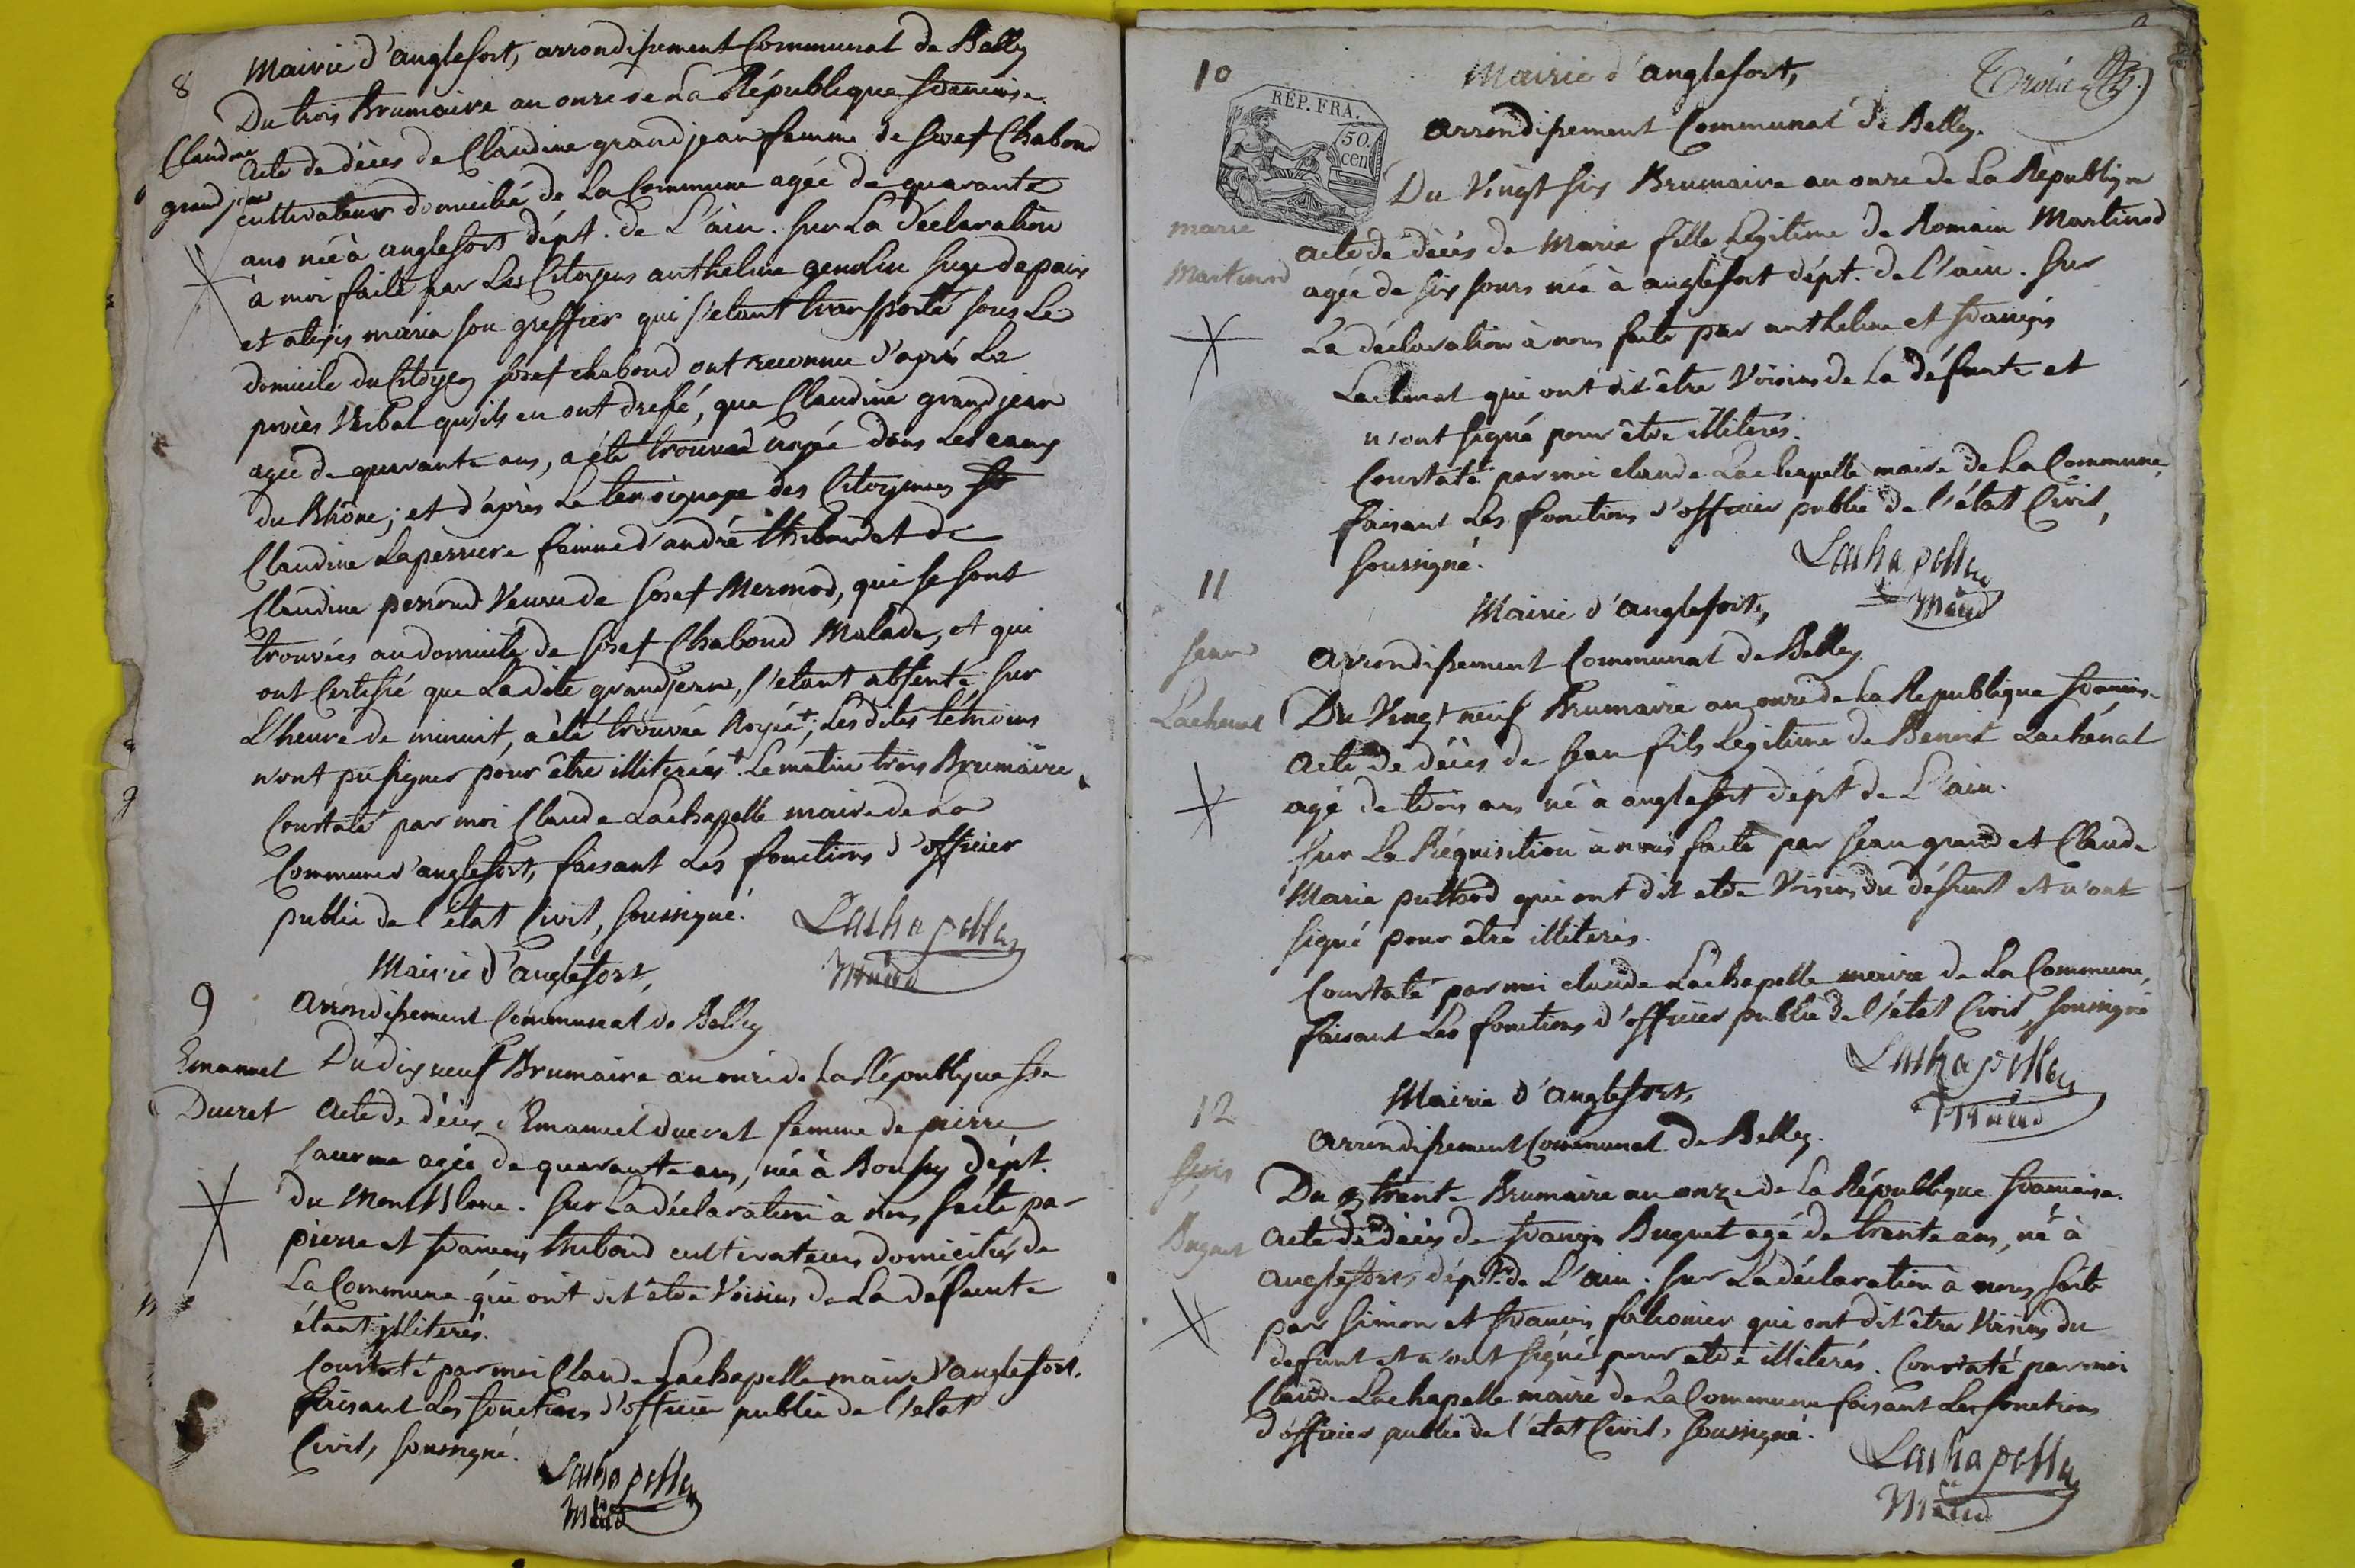 8
Mairie d'anglefort, arrondissement Communal de Belley
Du trois Brumaire an onze de La République francaise.
Claudine
grandjean
Acte de décès de Claudine grandjean femme de Josef Chaboud
cultivateur domicilié de La Commune agée de quarante
ans née à anglefort dépt. de L'ain. Sur La déclaration
à moi faite par Les Citoyens anthelme genolin juge de paix
et alexis maria son greffier qui s'etant transporté sous Le
domicile du Citoyen Josef chaboud ont reconnu d'après Le
procès Verbal qu'ils en ont dressé, que Claudine grandjean
agée de quarante ans, a été trouvée noyée dans Les eaux
du Rhône; et d'après Le temoignage des Citoyennes
Claudine Laperriere femme d'andré Thiboudet de
Claudine perroud Veuve de Josef Mermod, qui se sont
trouvées au domicile de Josef Chaboud Malade, et qui
ont Certifié que La dite grandjean, s'etant absenté sur
L'heure de minuit, a été trouvée Noyée +; Les dites témoins
n'ont pu signer pour être illiterées + Le matin trois Brumaire
Constaté par moi Claude Lachapelle maire de La
Commune d'anglefort, faisant Les fonctions d'officier
public de l'état Civil, soussigné.
Lachapelle
Maire
9
Mairie d'anglefort,
arrondissement Communal de Belley
Emanuel
Ducret
Du dix neuf Brumaire an onze de La République fse
Acte de décès d'Emanuel Ducret femme de pierre
agée de quarante ans, née à dépt.
du Mont Blanc. Sur La déclaration à nous faite par
pierre et francois thiboud cultivateurs domiciliés de
La Commune qui ont dit être Voisins de La defunte
étant illiterés.
Constaté par moi Claude Lachapelle maire d'anglefort.
faisant Les fonctions d'officier public de l'etat
Civil, soussigné.
Lachapelle
Maire
Trois
10
Mairie d'anglefort,
REP. FRA.
50.
cen
arrondissement Communal de Belley.
Du Vingt six Brumaire an onze de La République
marie
Martinod
acte de décès de Marie fille Legitime de Romain Martinod
agée de six jours née à anglefort dépt. de l'ain. Sur
La déclaration à nous faite par anthelme et françois
Lachenal qui ont dit être Voisins de La défunte et
n'ont signé pour être illiterés.
Constaté par moi claude Lachapelle maire de La Commune,
faisant Les fonctions d'officier public de l'état Civil,
soussigné.
Lachapelle
Maire
11
Mairie d'anglefort,
Jean
Lachenal
arrondissement Communal de Belley
Du Vingt neuf Brumaire an onze de La Republique francaise
Acte de décès de Jean fils Legitime de Benoit Lachénal
agé de trois ans né à anglefort dépt de L'ain.
sur La Réquisition à nous faite par Jean grand et Claude
Marie puthod qui ont dit etre Voisins du défunt et n'ont
signé pour être illiterés.
Constaté par moi claude Lachapelle maire de La Commune,
faisant Les fonctions d'officier public de l'état Civil, soussigné
Lachapelle
Maire
12
Mairie d'anglefort,
arrondissement Communal de Belley.
Buguet
Du trente Brumaire an onze de La République francaise.
Acte de décès de françois Buguet agé de trente ans, né à
anglefort, dépt. de L'ain. Sur La déclaration à nous faite
par Simon et francois falconier qui ont dit être Voisins du
defunt et n'ont signé pour etre illiterés. Constaté par moi
Claude Lachapelle maire de La Commune faisant Les fonctions
d'officier public de l'état Civil, soussigné.
Lachapelle
Maire